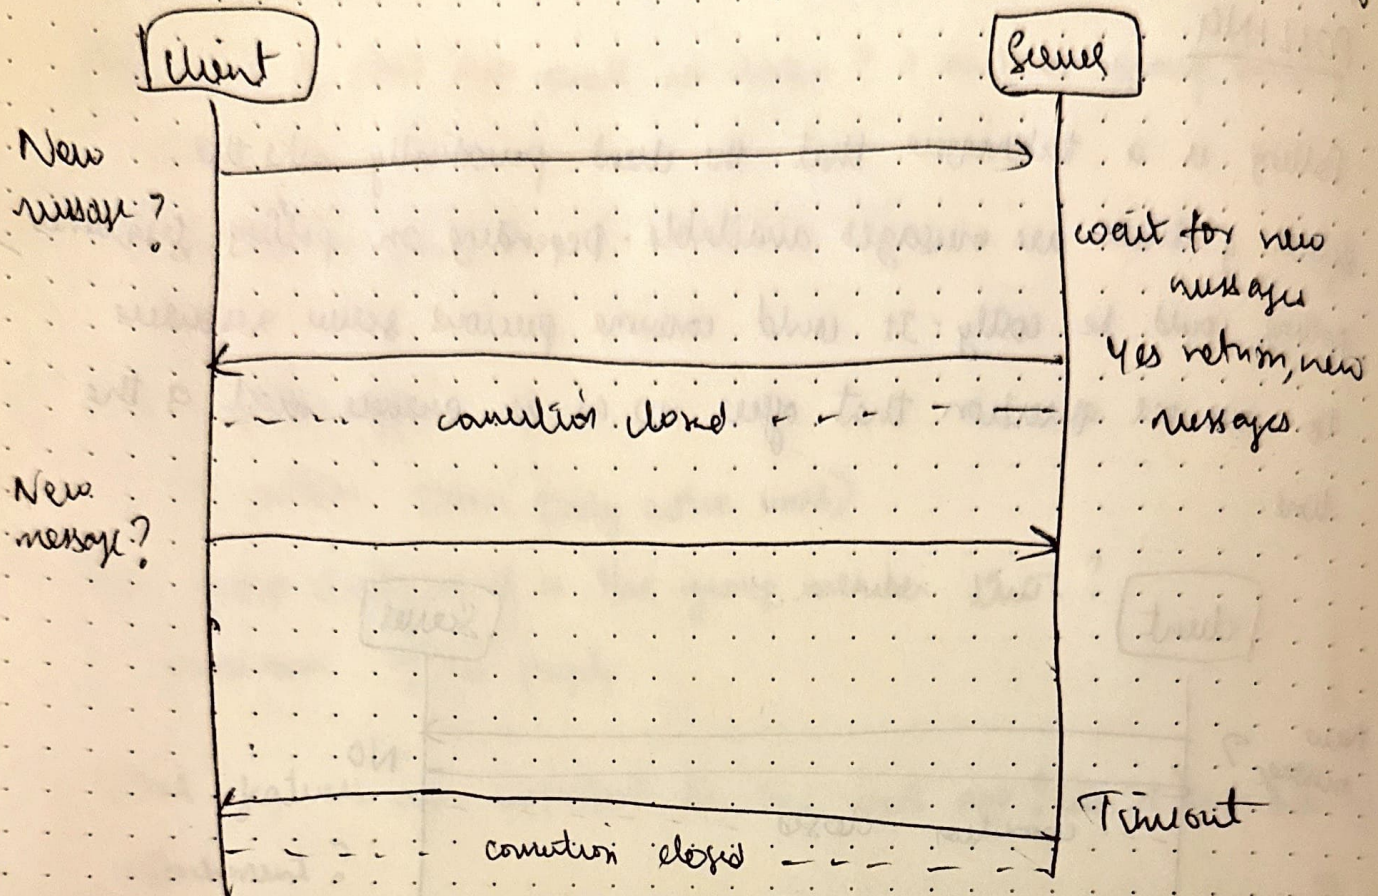 Client
Server
New
message?
wait for new
messages
Yes return, new
messages.
connection closed
New
message?
Timeout
connection closed